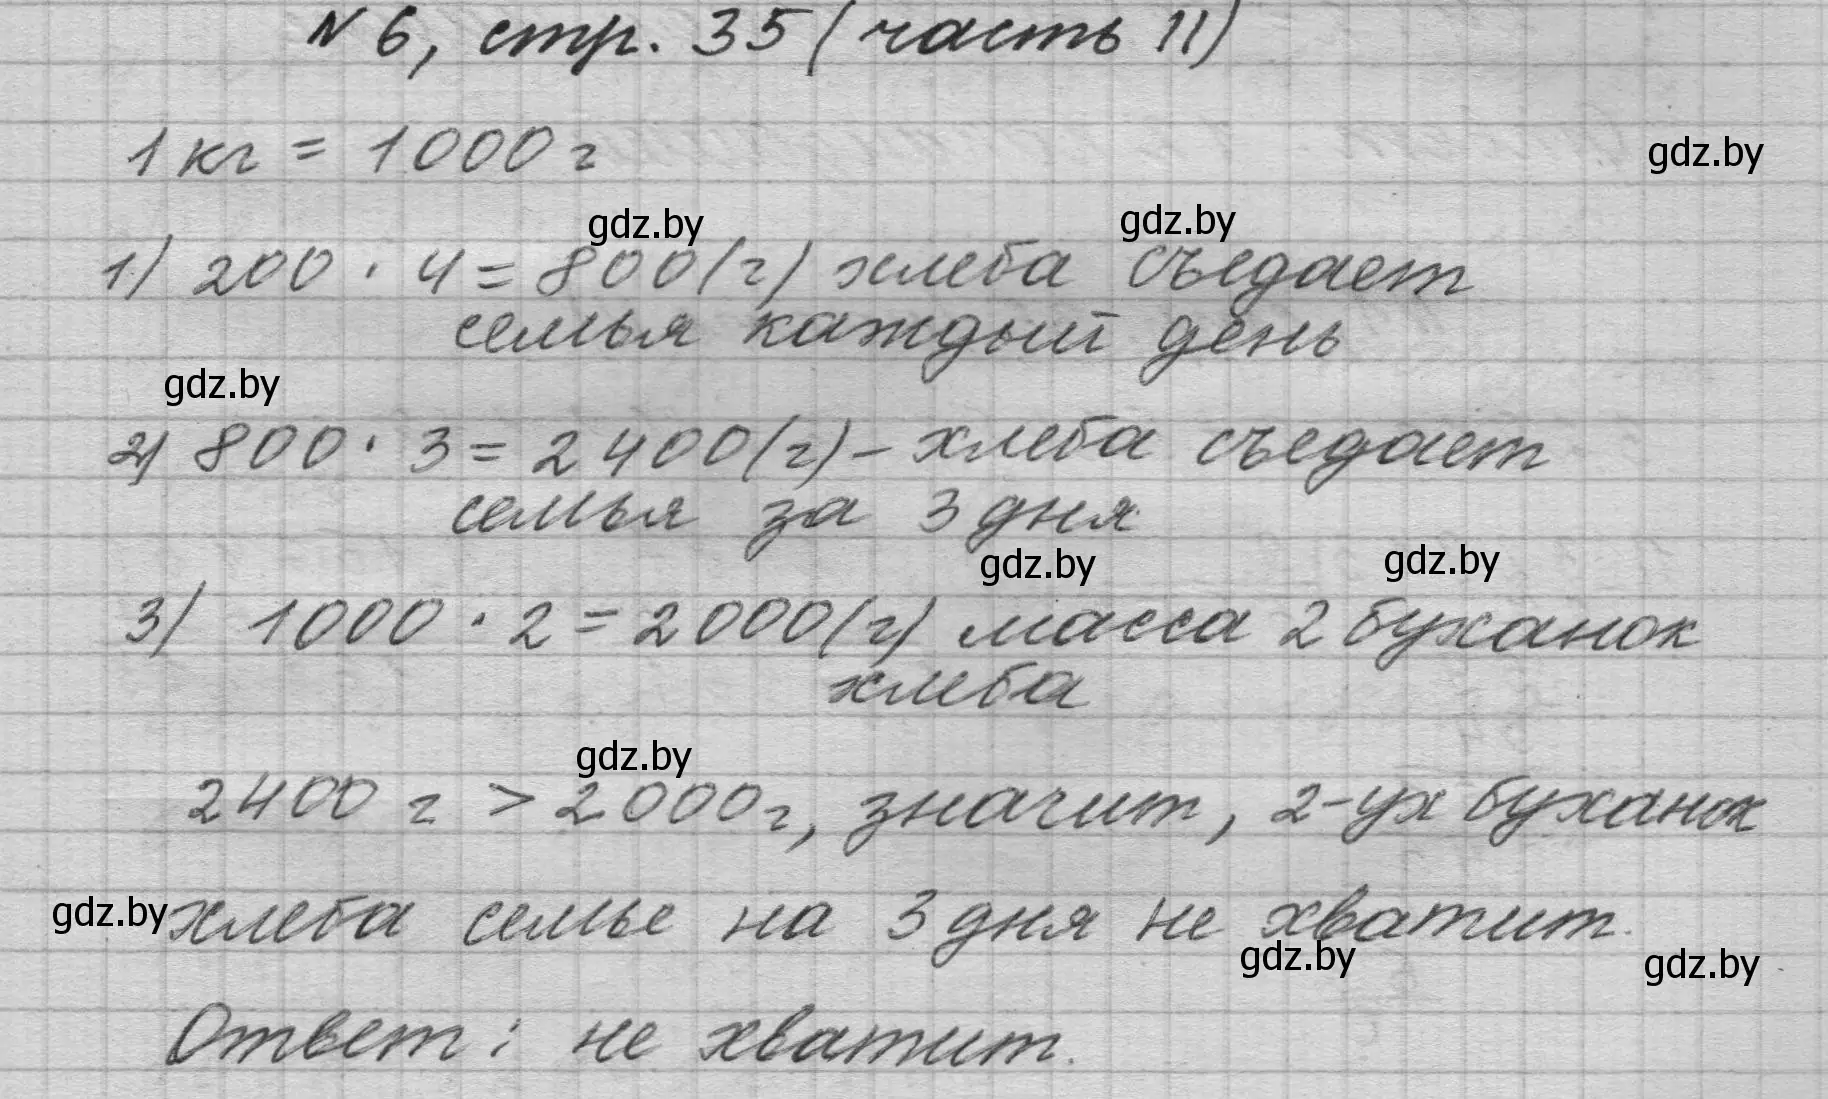 № 6, стр. 35 (часть II)
1 кг = 1000 г
gdz.by
gdz.by
gdz.by
1) 200 · 4 = 800 (г) хлеба съедает
семья каждый день
gdz.by
2) 800 · 3 = 2400 (г) – хлеба съедает
семья за 3 дня
gdz.by
gdz.by
3) 1000 · 2 = 2000 (г) масса 2 буханок
хлеба
gdz.by
2400 г > 2000 г, значит, 2-ух буханок
gdz.by
хлеба семье на 3 дня не хватит.
gdz.by
gdz.by
Ответ: не хватит.